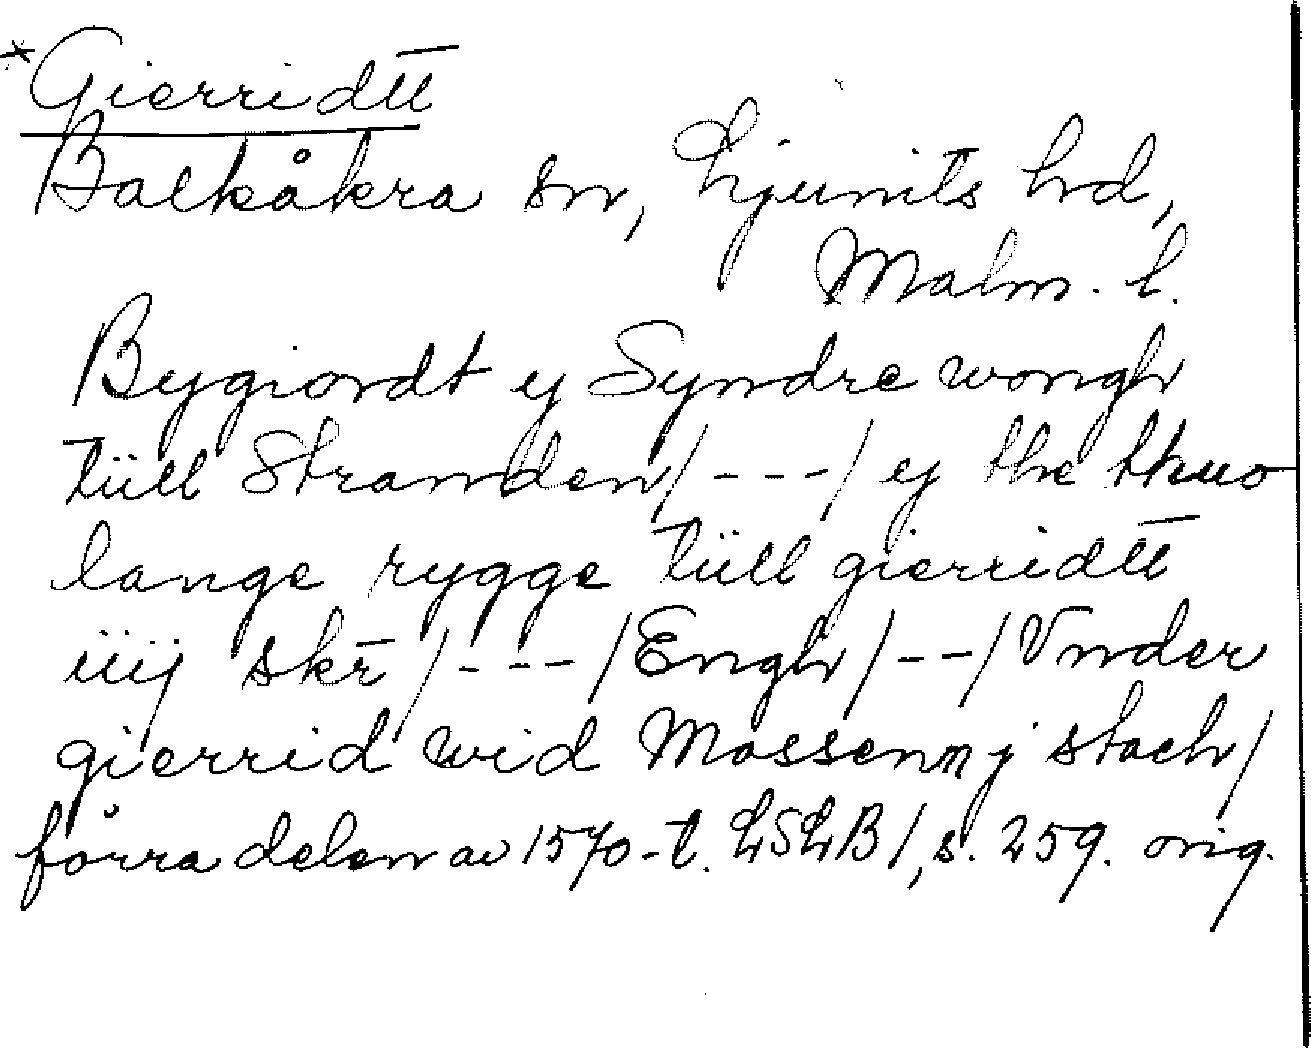 *Gierridtt
Balkåkra sn, Ljunits hd,
Malm. l.
Bygiordt ij Syndre wongh
tüll Stranden /---/ ij the thuo
lange rygge tüll gierridtt
iiij skr̄ /---/ Engh /--/ Vnder
gierrid wid Mossenn j stach /
förra delen av 1570-t. LSLB /, s. 259. orig.